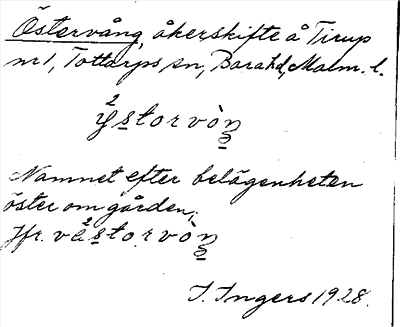 Östervång, åkerskifte å Tirup
nr 1, Tottarps sn, Barahd, Malm. l.
Namnet efter belägenheten
öster om gården,
Jfr.
I. Ingers 1928.